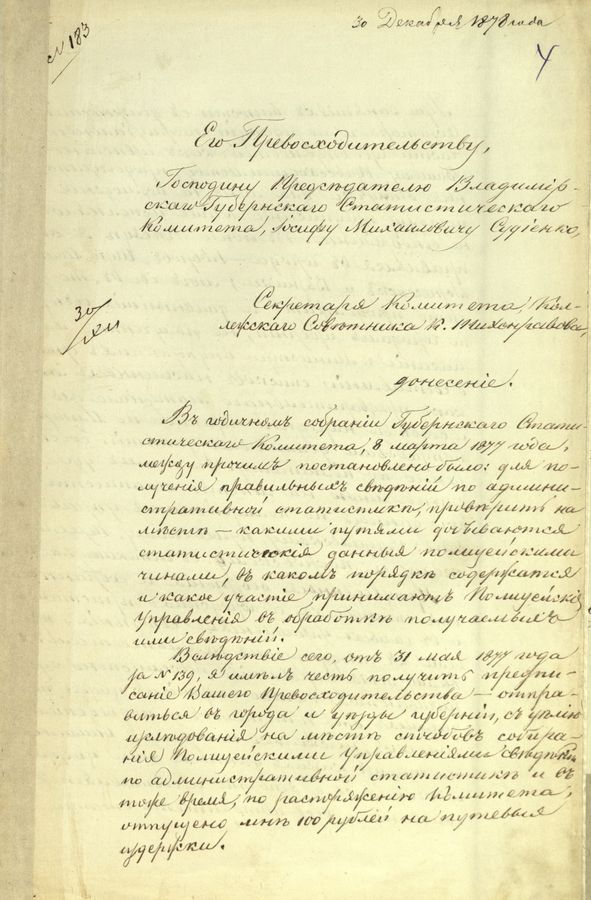 30 Декабря 1878 года
№ 183
4
Его Превосходительству,
Господину Предсѣдателю Владимір-
скаго Губернскаго Статистическаго
Комитета, Іосифу Михаиловичу Судіенко,
30/XII
Секретаря Комитета, Кол-
лежскаго Совѣтника К. Тихонравова,
донесеніе.
Въ годичномъ собраніи Губернскаго Стати-
стическаго Комитета, 8 марта 1877 года,
между прочимъ постановлено было: для по-
лученія правильныхъ свѣдѣній по админи-
стративной статистикѣ, провѣрить на
мѣстѣ – какими путями добываются
статистическія данныя полицейскими
чинами, въ какомъ порядкѣ содержатся
и какое участіе принимаютъ Полицейскія
Управленія въ обработкѣ получаемыхъ
ими свѣдѣній.
Вслѣдствіе сего, отъ 31 мая 1877 года
за № 139, я имѣлъ честь получить предпи-
саніе Вашего Превосходительства – отпра-
виться въ города и уѣзды губерніи, съ цѣлію
изслѣдованія на мѣстѣ способовъ собира-
нія Полицейскими Управленіями свѣдѣній
по административной статистикѣ и въ
тоже время, по распоряженію Комитета,
отпущено мнѣ 100 рублей на путевыя
издержки.